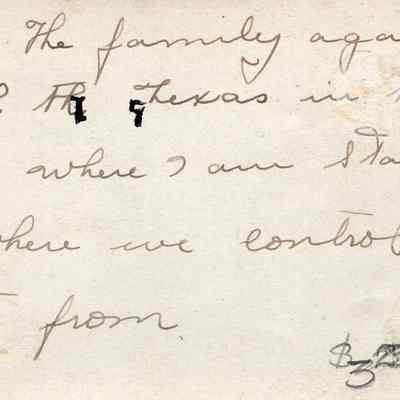 The family aga
Texas in
where I am sta
where we control
from
$3